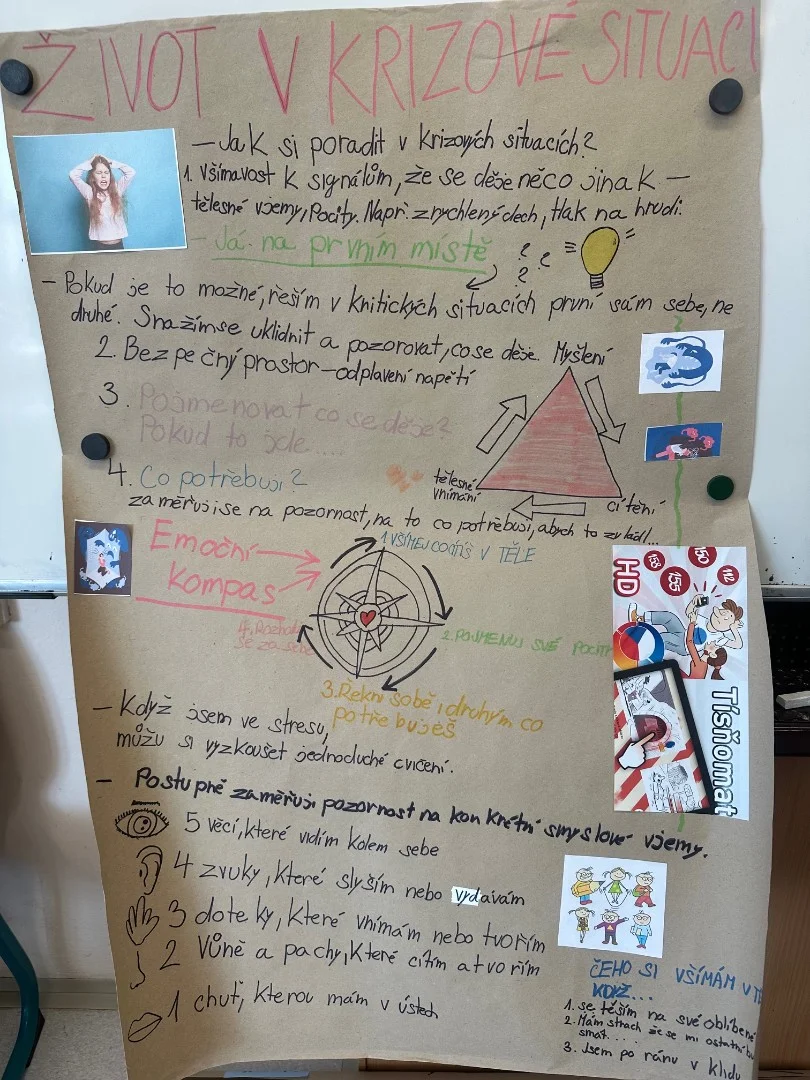 ŽIVOT V KRIZOVÉ SITUACI
– Jak si poradit v krizových situacích?
1. Všímavost k signálům, že se děje něco jinak –
tělesné vjemy, Pocity. Např. zrychlený dech, tlak na hrudi.
– Já na prvním místě
? ? ?
– Pokud je to možné, řeším v kritických situacích první sám sebe, ne
druhé. Snažímse uklidnit a pozorovat, co se děje.
2. Bezpečný prostor – odplavení napětí
Myšlení
3. Pojmenovat co se děje?
Pokud to jde....
tělesné
vnímání
cítění
4. Co potřebuji?
zaměřuji se na pozornost, na to co potřebuji, abych to zvládl...
Emoční
kompas
1 VŠÍMEJ CO CÍTÍŠ V TĚLE
2. POJMENUJ SVÉ POCITY
3. Řekni sobě i druhým co
potřebuješ
4. Rozhodni
se za sebe
HD
158
150
155
112
Tísňomat
– Když jsem ve stresu,
můžu si vyzkoušet jednoduché cvičení.
– Postupně zaměřuji pozornost na konkrétní smyslové vjemy.
5 věcí, které vidím kolem sebe
4 zvuky, které slyším nebo vydávám
3 doteky, které vnímám nebo tvořím
2 Vůně a pachy, které cítím a tvořím
1 chuť, kterou mám v ústech
ČEHO SI VŠÍMÁM V
KDYŽ...
1. se těším na své oblíbené
2. Mám strach že se mi ostatní
smát....
3. Jsem po ránu v klidu